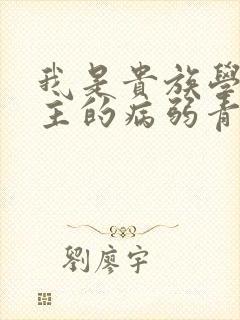 我是貴族學
主的病弱青
劉廖宇